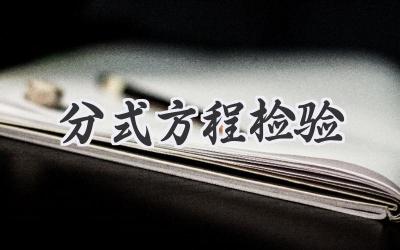 分式方程检验